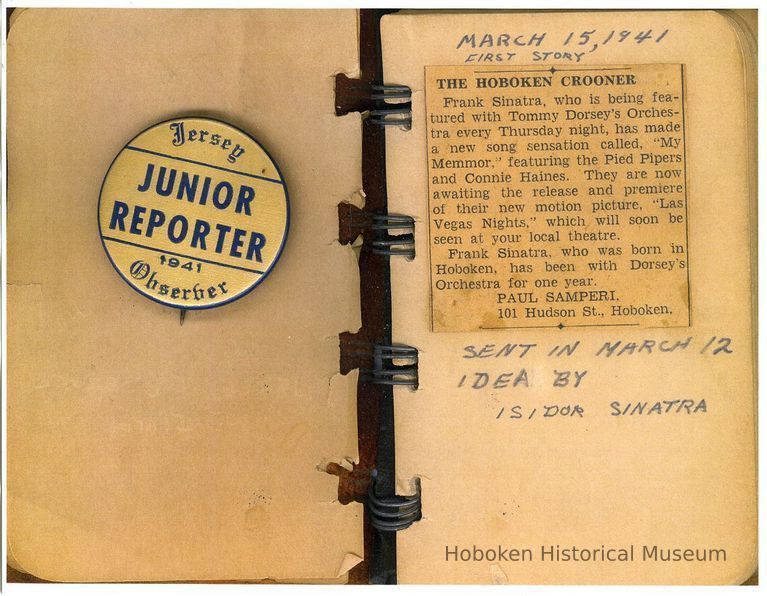 Jersey
JUNIOR
REPORTER
1941
Observer
MARCH 15, 1941
FIRST STORY
THE HOBOKEN CROONER
Frank Sinatra, who is being fea-
tured with Tommy Dorsey's Orches-
tra every Thursday night, has made
a new song sensation called, "My
Memmor," featuring the Pied Pipers
and Connie Haines. They are now
awaiting the release and premiere
of their new motion picture, "Las
Vegas Nights," which will soon be
seen at your local theatre.
Frank Sinatra, who was born in
Hoboken, has been with Dorsey's
Orchestra for one year.
PAUL SAMPERI,
101 Hudson St., Hoboken.
SENT IN MARCH 12
IDEA BY
ISIDOR SINATRA
Hoboken Historical Museum